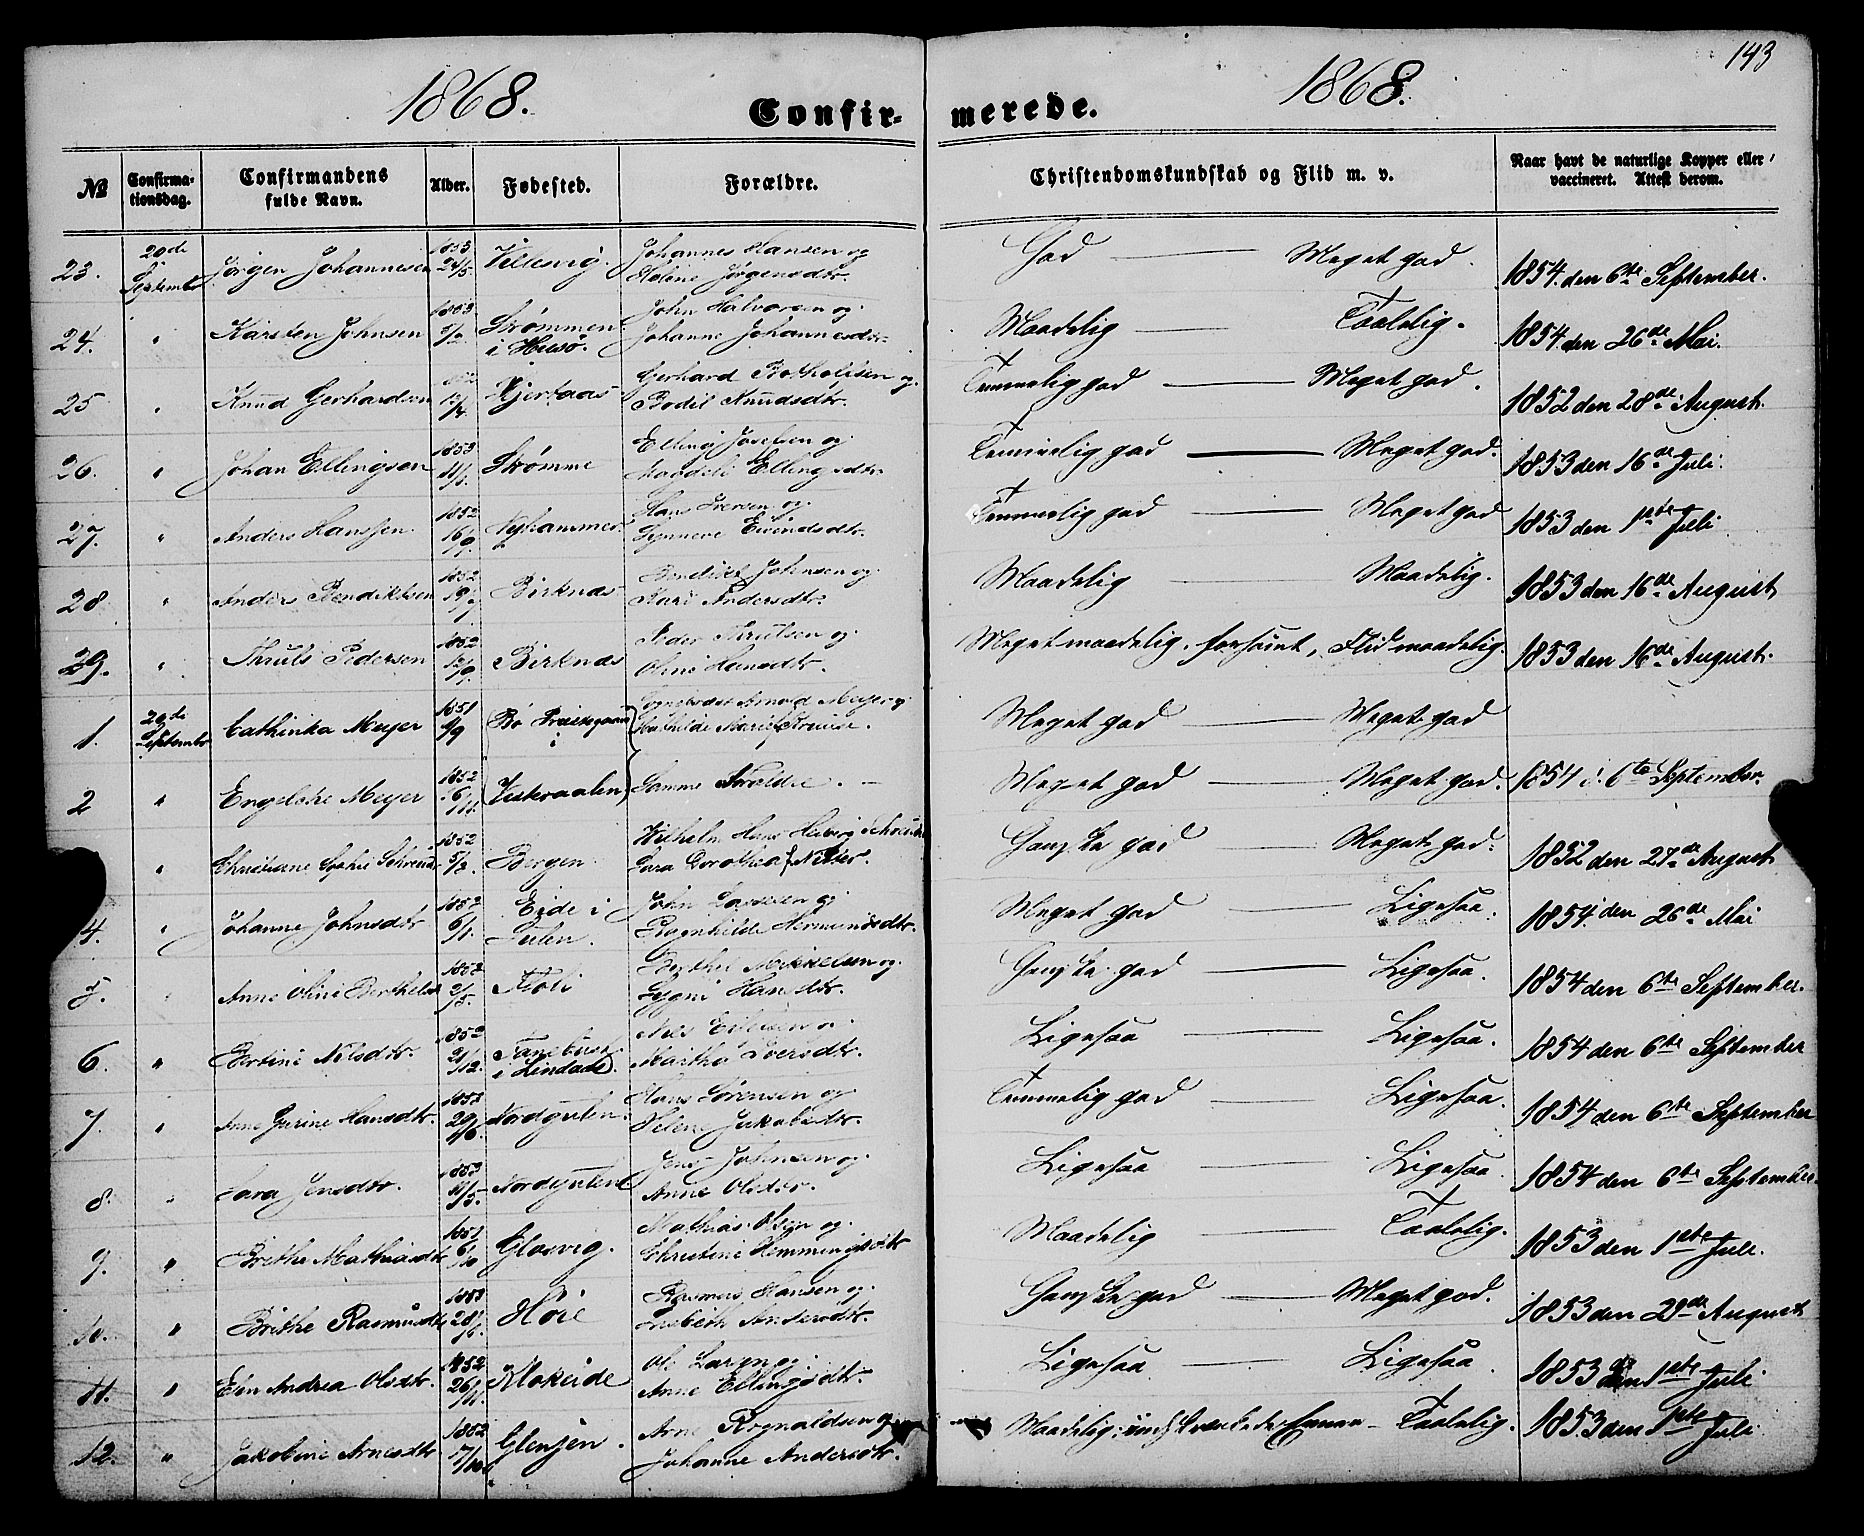 143
1868. 1868.
Confir- merede.
No Confirma-tionsdag. Confirmandens fulde Navn. Alder. Fødested. Forældre. Christendomskundskab og Flid m. v. Naar havt de naturlige Kopper eller vaccineret. Attest derom.
23. 20de September Jørgen Johannesen 1853 24/5 Villesvig. Johannes Hansen og Helene Jørgensdtr. God — Meget god. 1854 den 6te September.
24. " Karsten Johnsen 1853 Strømmen i Herø. John Halvorsen og Johanne Johannesdtr. Maadelig — Taalelig. 1854 den 26de Mai.
25 " Knud Gerhardsen Hjertaas Gerhard Botholfsen og Bodil Knudsdtr. Temmelig god — Meget god. 1852 den 28de August.
26. " Johan Ellingsen 1853 Strømme Elling Josefsen og Ellingsdtr. Temmelig god — Meget god. 1853 den 16de Juli.
27. " Anders Hanssen 1852 16/9 Nyhammer Hans Iversen og Synneve Eivindsdtr. Temmelig god — Meget god 1853 den 1ste Juli
28 " Anders Bendiktsen 1852 Birknæs Bendikt Johnsen og Kari Andersdtr. Maadelig — Maadelig. 1853 den 16de August
29. " Thruls Pedersen 1852 12/9 Birknæs Peder Thrulsen og Oline Hansdtr. Meget maadelig, forsømt, Flid maadelig. 1853 den 16de August.
1. 20de September Cathinka Meyer 1851 4/9 Bø Præstegaard i Arnold Meyer og Mathilde Marie Meget god — Meget god
2 " Engelche Meyer 1852 6/11 Vesteraalen Samme Forældre. — Meget god — Meget god. 1854 d. 6te September.
" Christiane Sophie 1852 5/2 Bergen Wilhelm Hans Sara Dorothea Ganske god — Meget god. 1852 den 27de August
4. " Johanne Johnsdtr 1852 6/1. Eide i John Larsen og Ragnhilde Hermundsdtr. Meget god — Ligesaa. 1854 den 26de Mai
5. " Anne Oline Berthels 2/5. Berthel Mikkelsen og Hansdtr. Ganske god — Ligesaa. 1854 den 6te September.
6. " Bertine Nilsdtr. 1852 21/12. i Lindaas. Nils og Martha Iversdtr. Ligesaa — Ligesaa. 1854 den 6te September
7. " Anne Gurine Hansdtr. 1853 29/6. Nordgulen. Hans Sørensen og Selene Jakobsdtr. Temmelig god — Ligesaa. 1854 den 6te September
8. " Sara Jensdtr. 1853 Nordgulen Jens Johnsen og Anne Olsdtr. Ligesaa — Ligesaa. 1854 den 6te September.
9. " Brithe Mathiasdtr 1851 6/10 Glosvig. Mathias Olsen og Christine Hemmingsdtr Maadelig — Taalelig. 1853 den 1ste Juli.
10. " Brithe Rasmusdtr 1853 Høie Rasmus Hansen og Lisbeth Andersdtr. Ganske god — Meget god. 1853 den 29de August
11. " Elen Andrea Olsdtr. 1852 26/11 Mokeide Ole Larsen og Anne Ellingsdtr. Ligesaa — Ligesaa. 1853 den 1ste Juli
12. " Jakobine Arnesdtr 1852 17/10 Glenjen. Arne Rognaldsen og Johanne Andersdtr. Maadelig; — Taalelig. 1853 den 1ste Juli